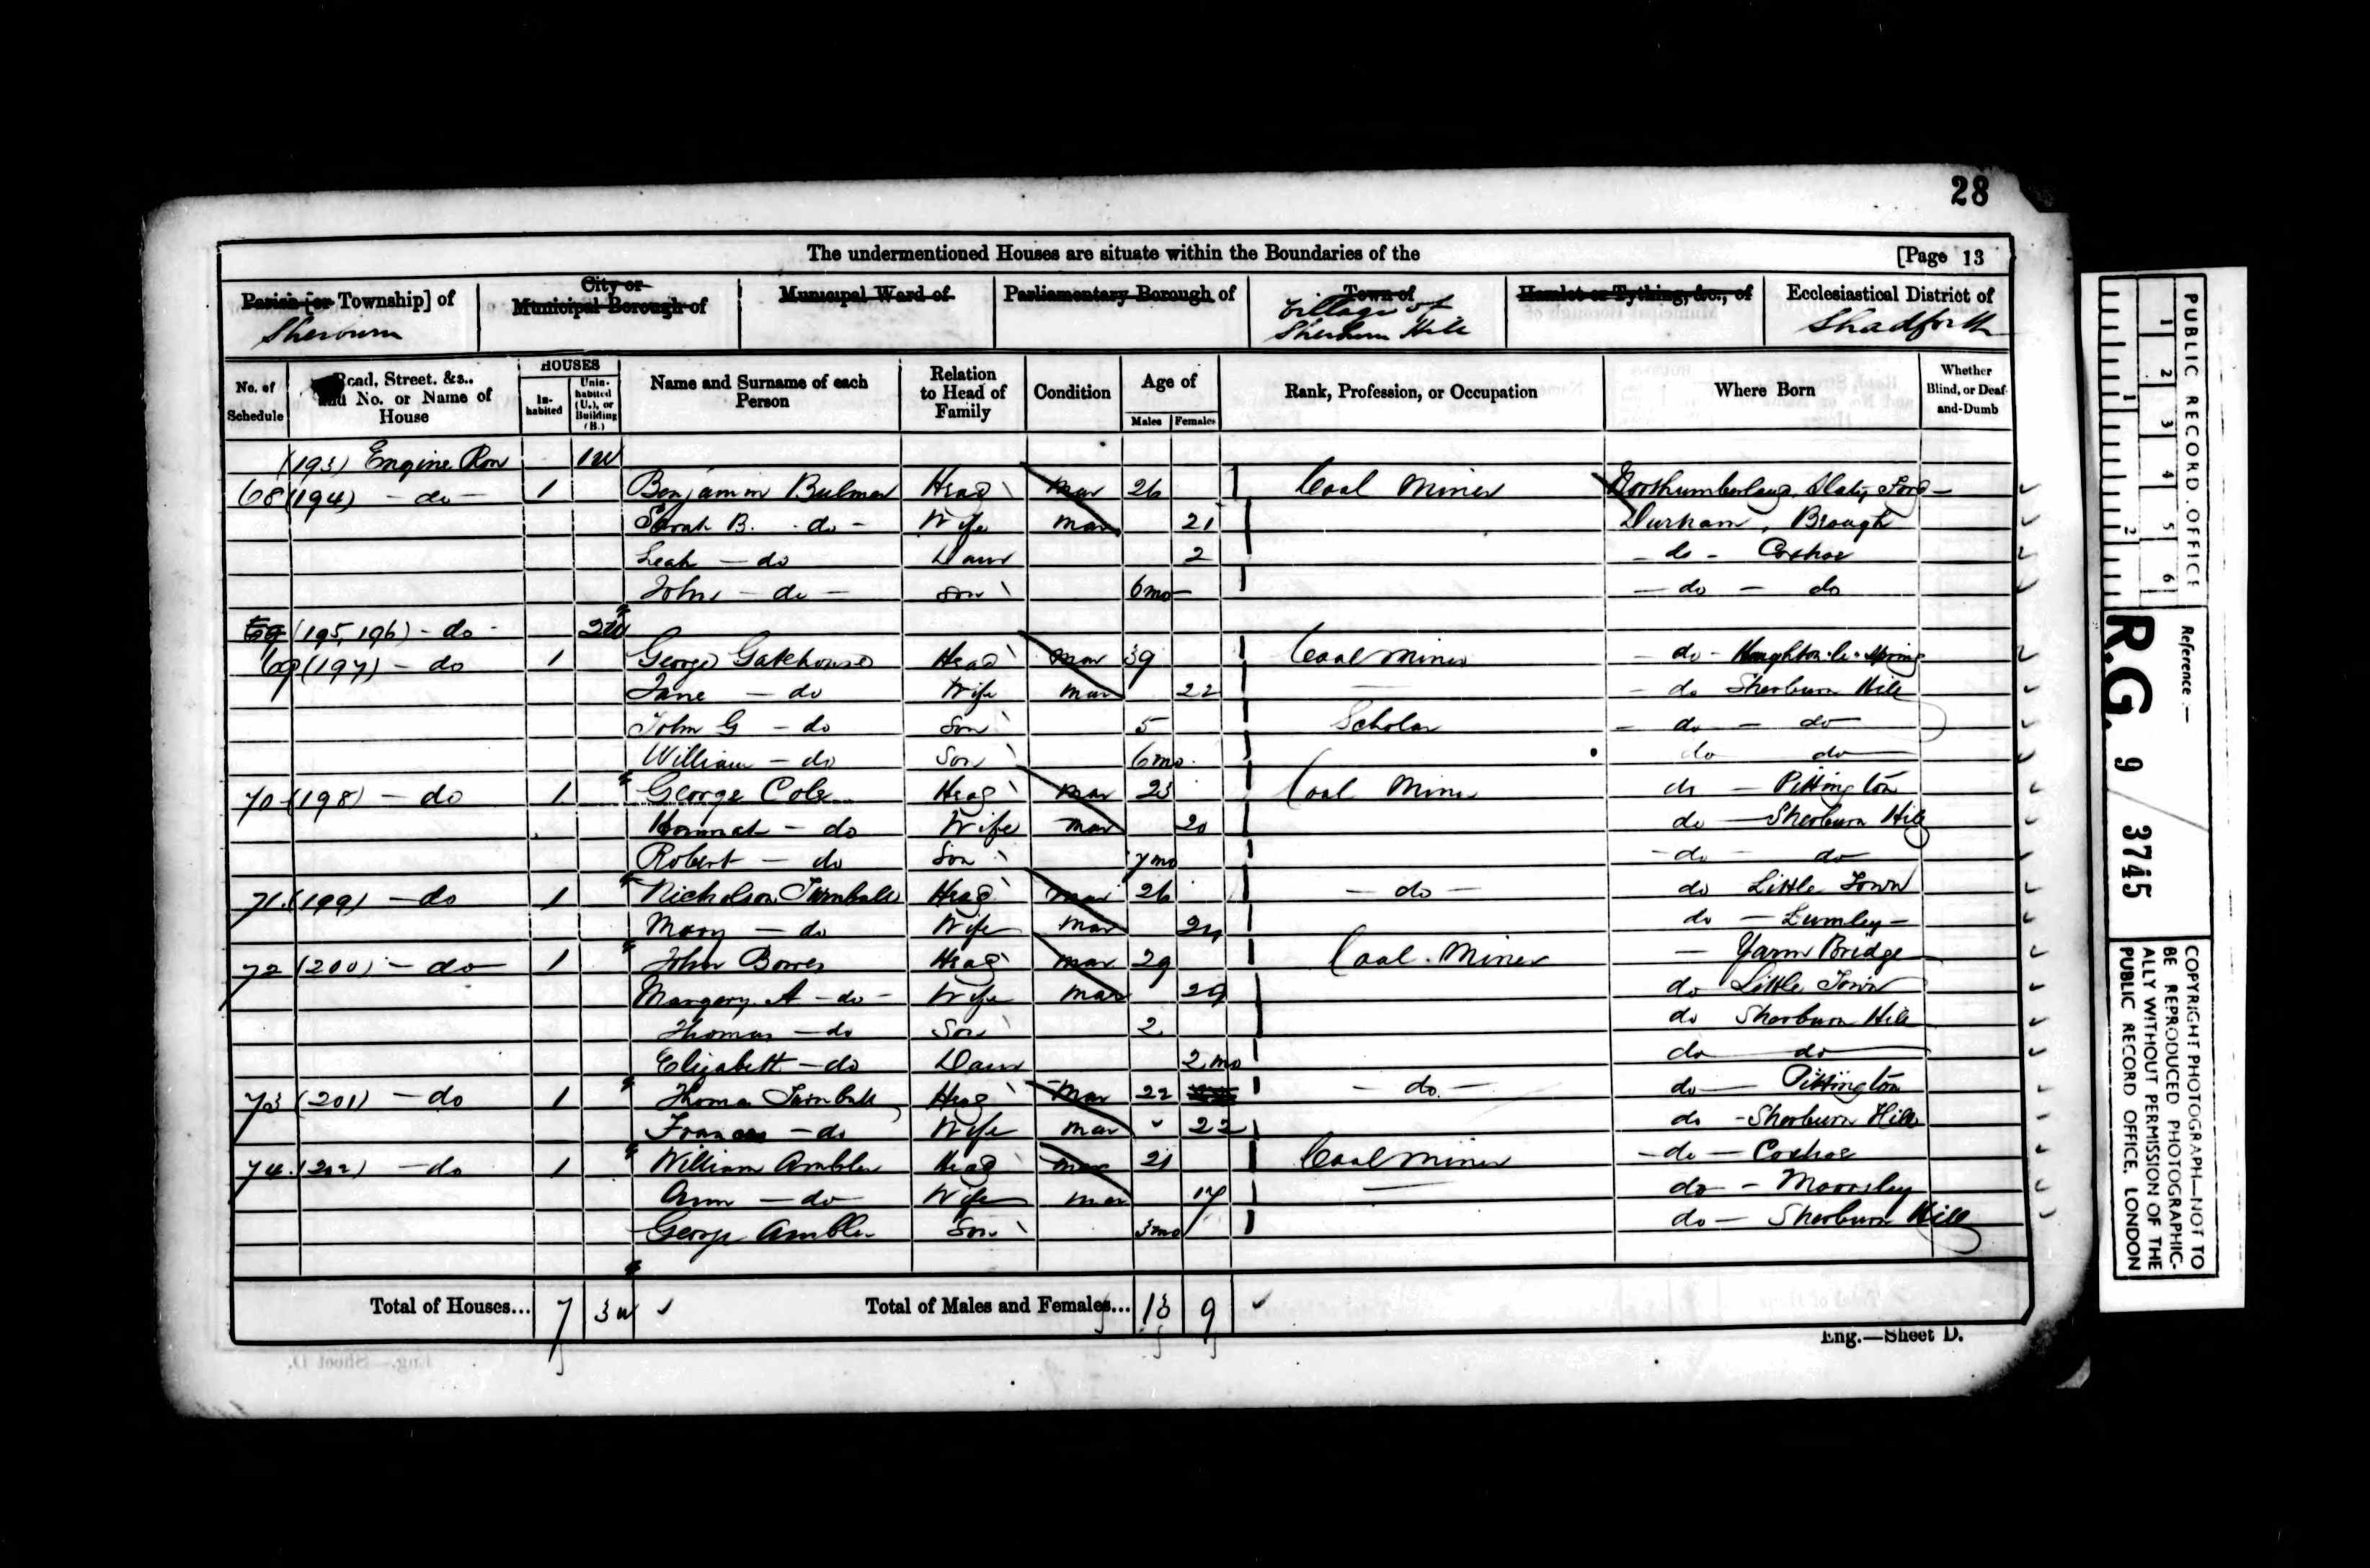 28
The undermentioned Houses are situate within the Boundaries of the [Page 13
Parish [or Township] of City or Municipal Borough of Municipal Ward of Parliamentary Borough of Town of Hamlet or Tything, &c., of Ecclesiastical District of
Sherburn Village of Sherburn Hill Shadforth
No. of Schedule Road, Street, &c., and No. or Name of House HOUSES Inhabited Uninhabited (U.), or Building (B.) Name and Surname of each Person Relation to Head of Family Condition Age of Males Females Rank, Profession, or Occupation Where Born Whether Blind, or Deaf-and-Dumb
(193) Engine Row 1 u
68 (194) - do - 1 Benjamin Bulmer Head Mar 26 Coal Miner Northumberland, Slaty Ford
Sarah B. - do - Wife Mar 21 Durham, Brough
Leah - do Daur 2 - do - Coxhoe
John - do - Son 6mo - do - do
69 (195, 196) - do - 2 u
69 (197) - do 1 George Gatehouse Head Mar 39 Coal Miner - do - Houghton-le-Spring
Jane - do Wife Mar 22 - do Sherburn Hill
John G - do Son 5 Scholar - do - do
William - do Son 6mo. do do
70 (198) - do 1 George Cole Head Mar 23 Coal Miner do - Pittington
Hannah - do Wife Mar 20 do - Sherburn Hill
Robert - do Son 7mo - do - do
71 (199) - do 1 Nicholson Turnbull Head Mar 26 - do - do Little Town
Mary - do Wife Mar 24 do - Lumley -
72 (200) - do 1 John Bowes Head Mar 29 Coal Miner - Yarm Bridge
Margery A - do - Wife Mar 29 do Little Town
Thomas - do Son 2 do Sherburn Hill
Elizabeth - do Daur 2mo do do
73 (201) - do 1 Thomas Turnbull Head Mar 22 - do - do - Pittington
Frances - do Wife Mar 22 do - Sherburn Hill
74 (202) - do 1 William Ambler Head Mar 21 Coal Miner - do - Coxhoe
Ann - do Wife Mar 17 do - Moorsley
George Ambler Son 3mo do - Sherburn Hill
Total of Houses... 7 3 u Total of Males and Females... 13 9
Eng.—Sheet D.
PUBLIC RECORD OFFICE
1 2 3 4 5 6
1 2
Reference:—
R.G. 9 / 3745
COPYRIGHT PHOTOGRAPH—NOT TO
BE REPRODUCED PHOTOGRAPHIC-
ALLY WITHOUT PERMISSION OF THE
PUBLIC RECORD OFFICE, LONDON